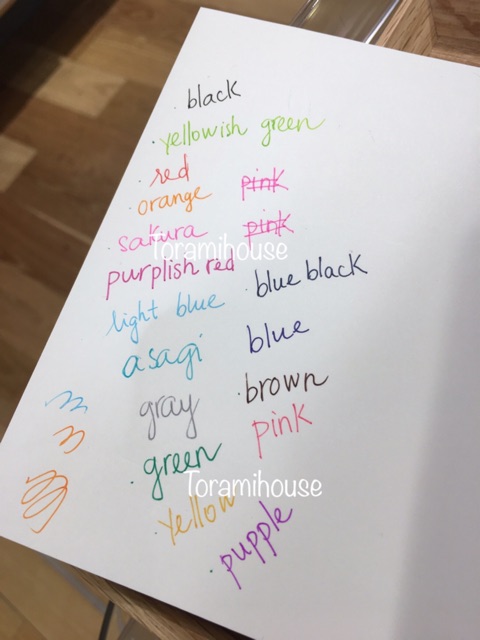 black
yellowish green
red
orange
pink
sakura
pink
Toramihouse
purplish red
light blue
blue black
asagi
blue
gray
brown
pink
green
Toramihouse
yellow
pupple